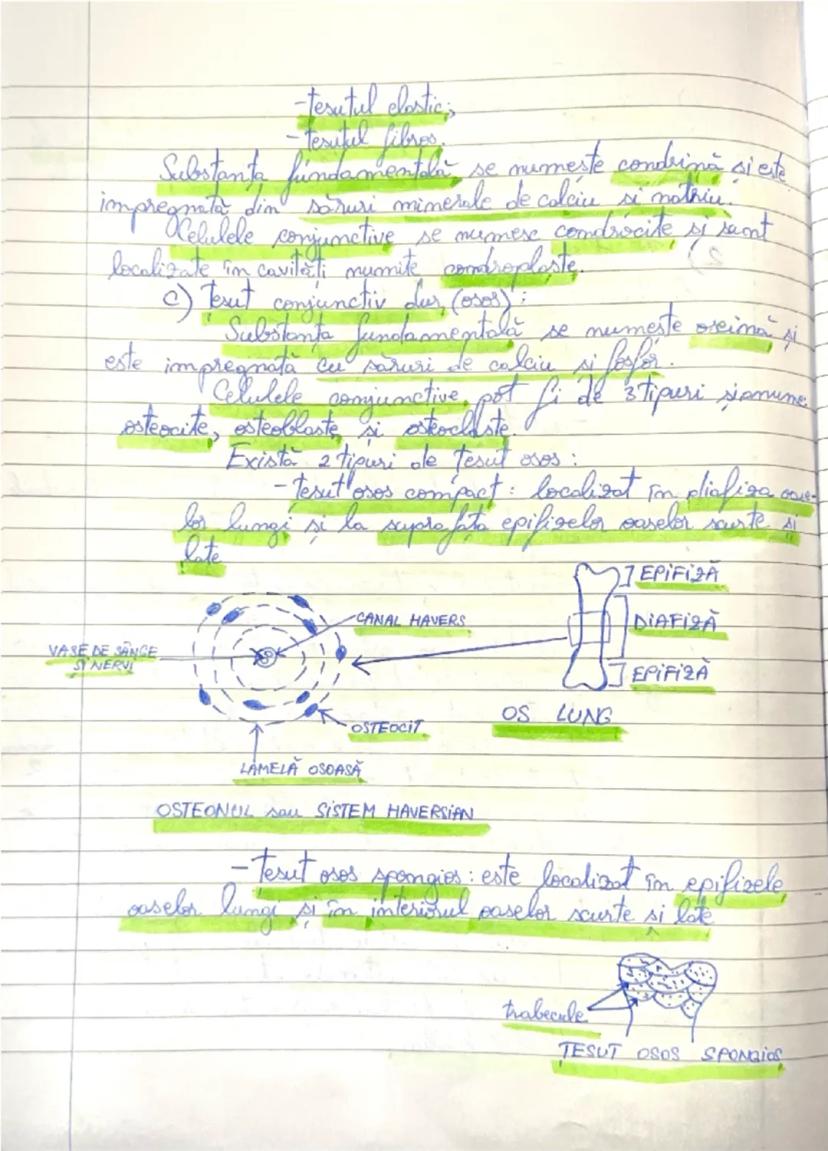 -țesutul elastic;
-țesutul fibros.
Substanța fundamentală se numește condrină și este
impregnată din săruri minerale de calciu si natriu.
Celulele conjunctive se numesc condrocite și sunt
localizate în cavități numite condroplaste.
c) Țesut conjunctiv dur (osos):
Substanța fundamentală se numește oseină și
este impregnată cu săruri de calciu și fosfor.
Celulele conjunctive, pot fi de 3 tipuri și anume:
osteocite, osteoblaste și osteoclaste.
Există 2 tipuri de țesut osos:
-țesut osos compact: localizat în diafiza oase-
lor lungi și la suprafața epifizelor oaselor scurte si
late
EPIFIZĂ
CANAL HAVERS
DIAFIZĂ
VASE DE SÂNGE
ȘI NERVI
EPIFIZĂ
OS LUNG
OSTEOCIT
LAMELĂ OSOASĂ
OSTEONUL sau SISTEM HAVERSIAN
-Țesut osos spongios: este localizat în epifizele
oaselor lungi și în interiorul oaselor scurte si late
trabecule
ȚESUT OSOS SPONGIOS